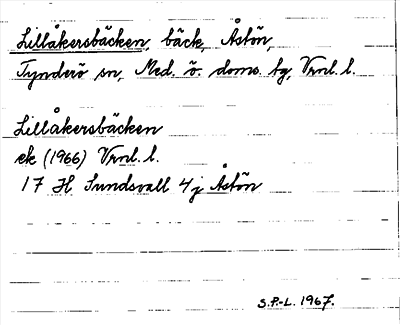 Lillåkersbäcken, bäck, Åstön,
Tynderö sn, Med. ö. doms. tg, Vrnl. l.
Lillåkersbäcken
ek (1966) Vrnl. l.
17 H Sundsvall 4 j Åstön
S.P.-L. 1967.